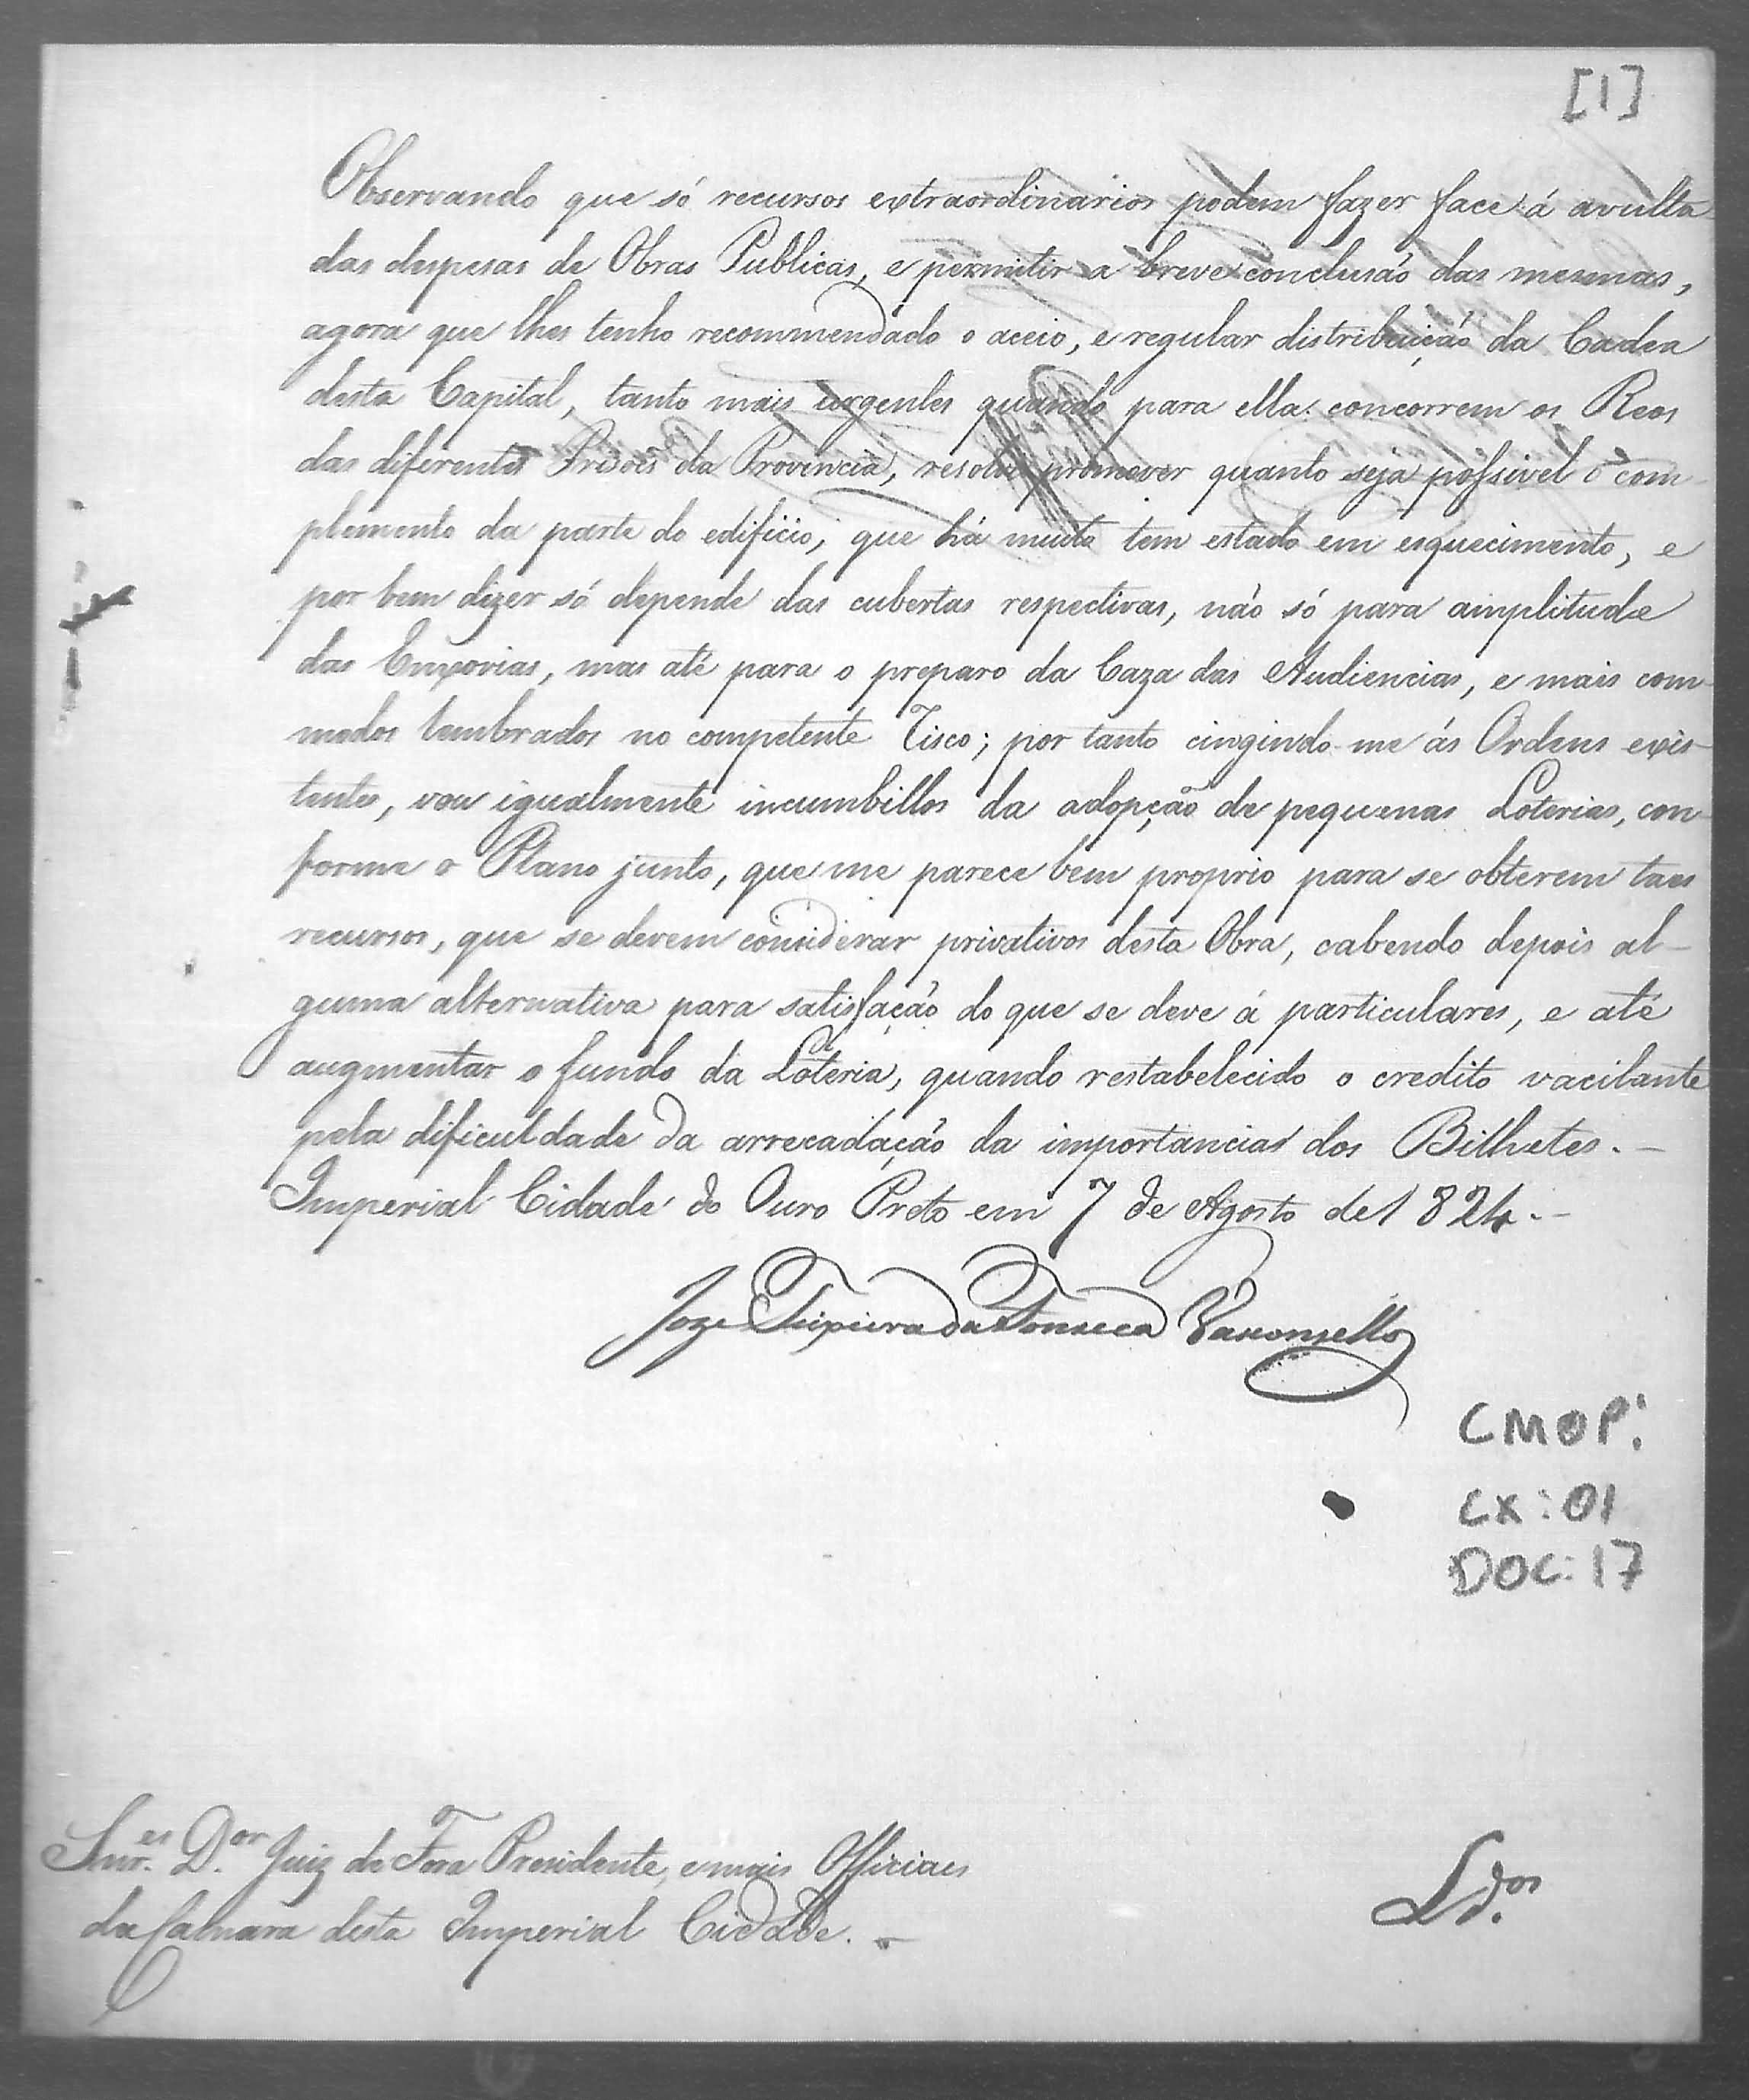 [1]
Observando que só recursos extraordinarios podem fazer face á avulta
das despesas de Obras Publicas, e permitir a breve conclusão das mesmas,
agora que lhes tenho recommendado o aceio, e regular distribuição da Cadea
desta Capital, tanto mais urgentes quando para ella concorrem os Reos
das diferentes Prisoēs da Provincia, resolvi promover quanto seja possivel o com
plemento da parte do edificio, que há muito tem estado em esquecimento, e
por bem dizer só depende das cubertas respectivas, não só para amplitude
das Enxovias, mas até para o preparo da Caza das Audiencias, e mais com-
modos lembrados no competente Risco; por tanto cingindo-me ás Ordens exis-
tentes, vou igualmente incumbillos da adopção de pequenas Loterias, con-
forme o Plano junto, que me parece bem proprio para se obterem taes
recursos, que se devem considerar privativos desta Obra, cabendo depois al-
guma alternativa para satisfação do que se deve á particulares, e até
augmentar o fundo da Loteria, quando restabelecido o credito vacilante
pela dificuldade da arrecadação da importancias dos Bilhetes. -
Imperial Cidade do Ouro Preto em 7 de Agosto de 1824. -
Joze Teixeira da Fonseca Vasconcellos
CMOP:
CX: 01
DOC: 17
Snr.es D.or Juiz de Fora Presidente, e mais Officiaes
da Camara desta Imperial Cidade. -